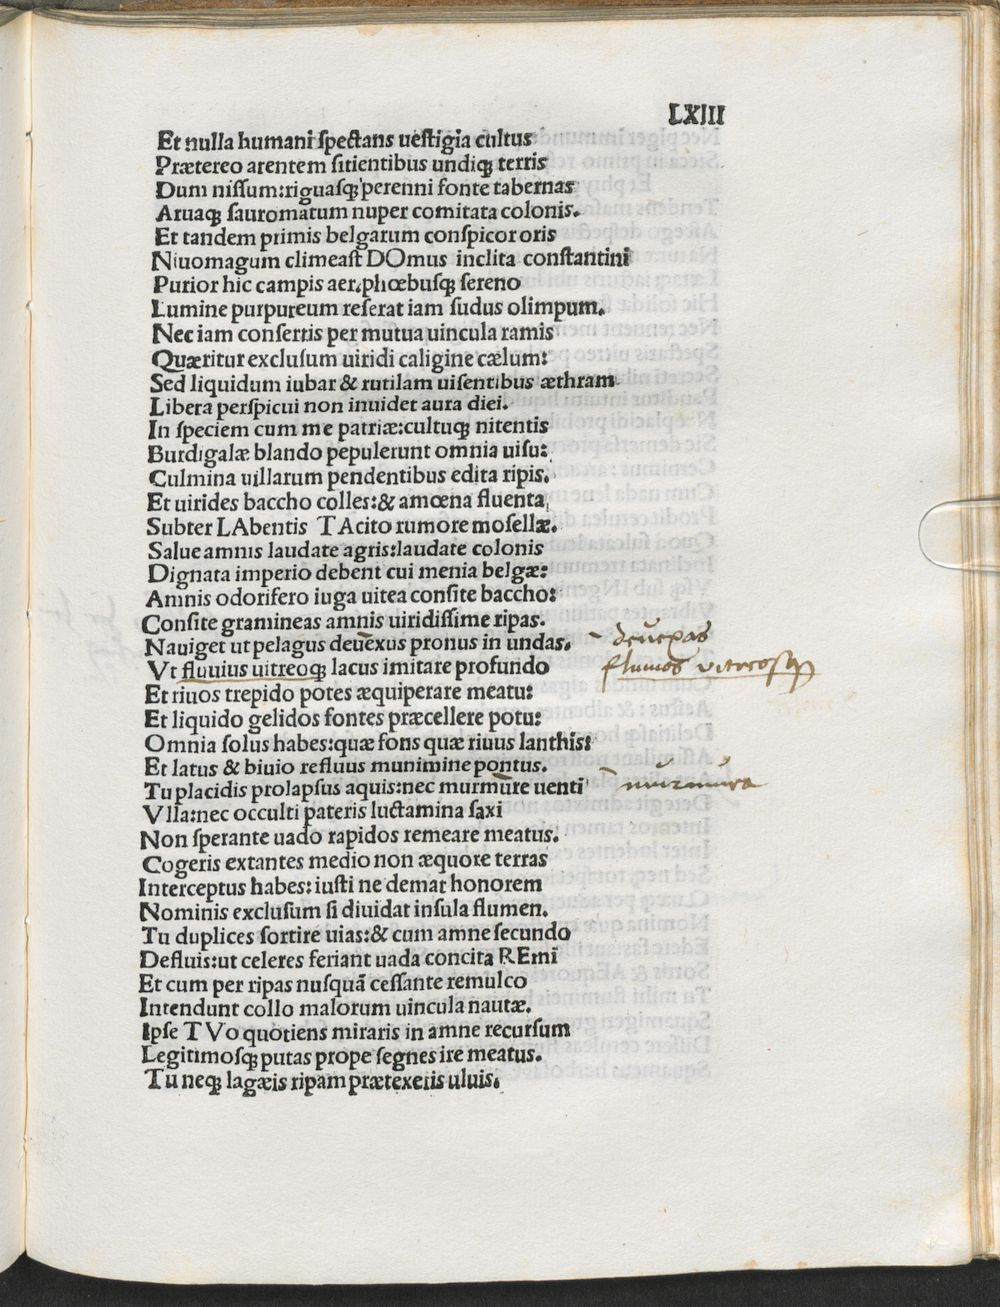 LXIII
Et nulla humani spectans uestigia cultus
Prætereo arentem sitientibus undiqꝫ terris
Dum nissum:riguasqꝫ perenni fonte tabernas
Aruaqꝫ sauromatum nuper comitata colonis.
Et tandem primis belgarum conspicor oris
Niuomagum climeast DOmus inclita constantini
Purior hic campis aer.phœbusqꝫ sereno
Lumine purpureum reserat iam sudus olimpum.
Nec iam consertis per mutua uincula ramis
Quæritur exclusum uiridi caligine cælum:
Sed liquidum iubar & rutilam uisentibus æthram.
Libera perspicui non inuidet aura diei.
In speciem cum me patriæ:cultuqꝫ nitentis
Burdigalæ blando pepulerunt omnia uisu:
Culmina uillarum pendentibus edita ripis.
Et uirides baccho colles:& amœna fluenta
Subter LAbentis TAcito rumore mosellæ.
Salue amnis laudate agris:laudate colonis
Dignata imperio debent cui menia belgæ:
Amnis odorifero iuga uitea consite baccho:
Consite gramineas amnis uiridissime ripas.
Nauiget ut pelagus deuexus pronus in undas. deuexas
Vt fluuius uitreoqꝫ lacus imitare profundo fluuios vitreosqꝫ
Et riuos trepido potes æquiperare meatu:
Et liquido gelidos fontes præcellere potu:
Omnia solus habes:quæ fons quæ riuus lanthis:
Et latus & biuio refluus munimine pontus.
Tu placidis prolapsus aquis:nec murmure uenti murmura
Vlla:nec occulti pateris luctamina saxi
Non sperante uado rapidos remeare meatus.
Cogeris extantes medio non æquore terras
Interceptus habes:iusti ne demat honorem
Nominis exclusum si diuidat insula flumen.
Tu duplices sortire uias:& cum amne secundo
Defluis:ut celeres feriant uada concita REmi
Et cum per ripas nusquã cessante remulco
Intendunt collo malorum uincula nautæ.
Ipse TVo quotiens miraris in amne recursum
Legitimosqꝫ putas prope segnes ire meatus.
Tu neqꝫ lagæis ripam prætexeiis uluis.